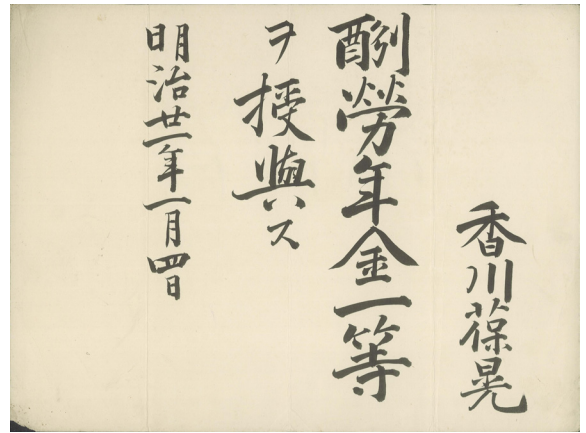 香川葆晃
酬勞年金一等
ヲ授與ス
明治廿一年一月四日